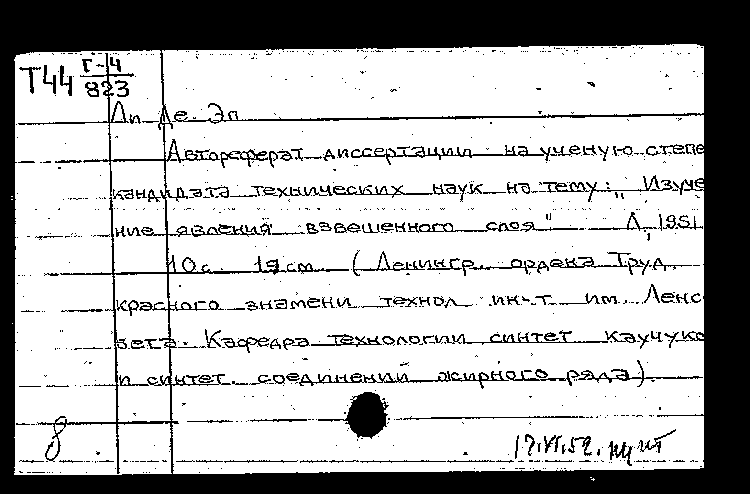 Т44 Г-4
823
Ли Де-Эн
Автореферат диссертации на ученую степе
кандидата технических наук на тему: „Изуче
ние явления взвешенного слоя" Л, 1951
10с. 19см (Ленингр. ордена Труд.
красного знамени технол ин-т им. Ленс
вета. Кафедра технологии синтет каучуко
и синтет. соединений жирного ряда).
8 17.VI.52.